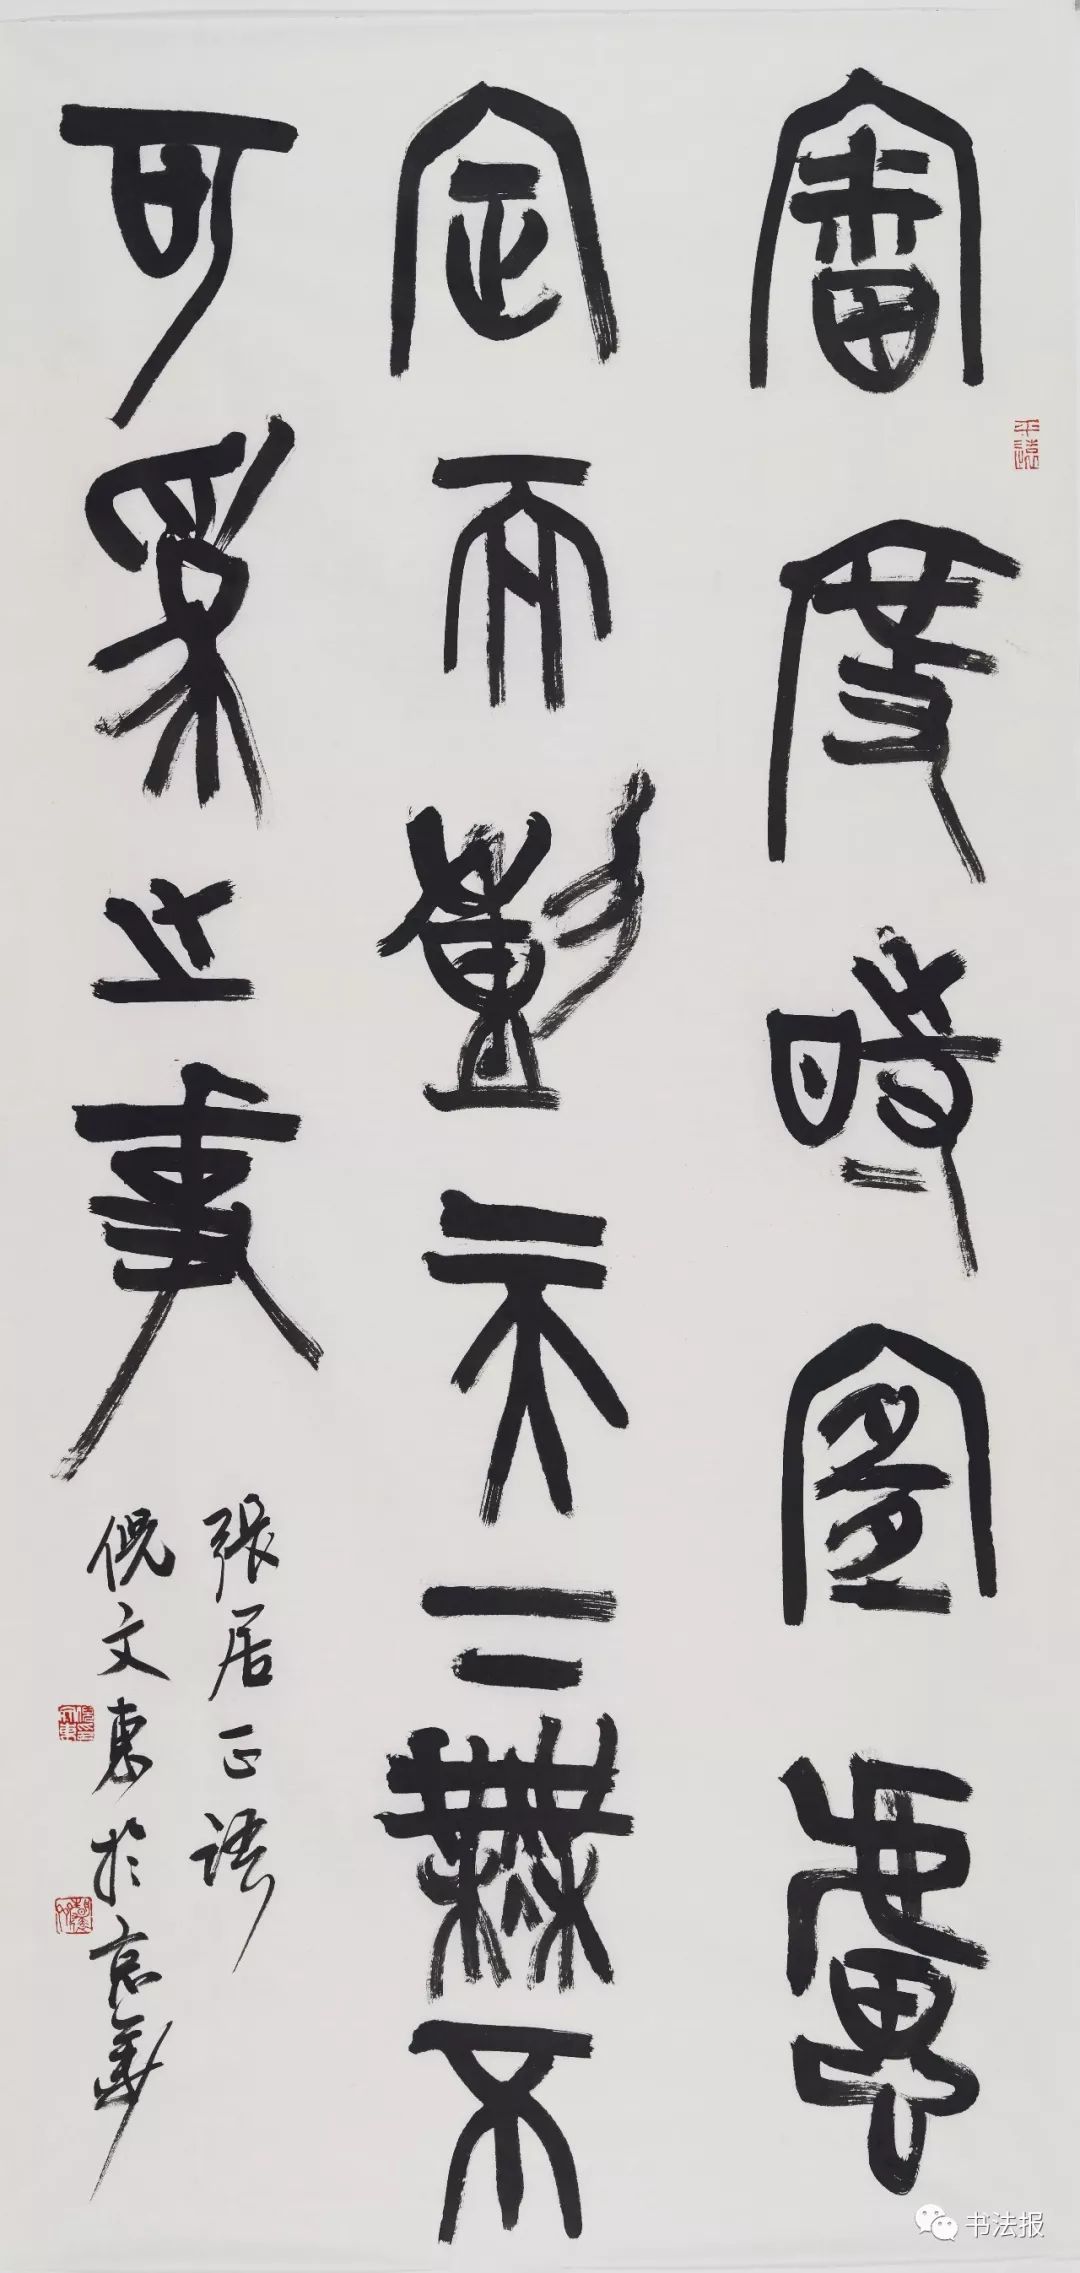 審度時宜慮
定而動天下無不
可為之事
張居正語
倪文東於京華
平遠
书法报